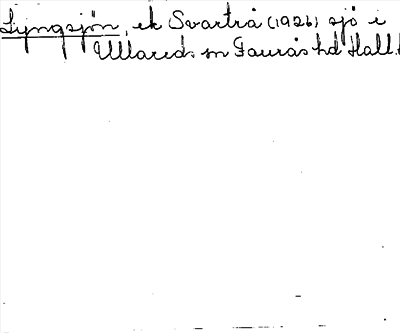 Lyngsjön, ek Svartrå (1926) sjö i
Ullared. sn Faurås hd Hall.